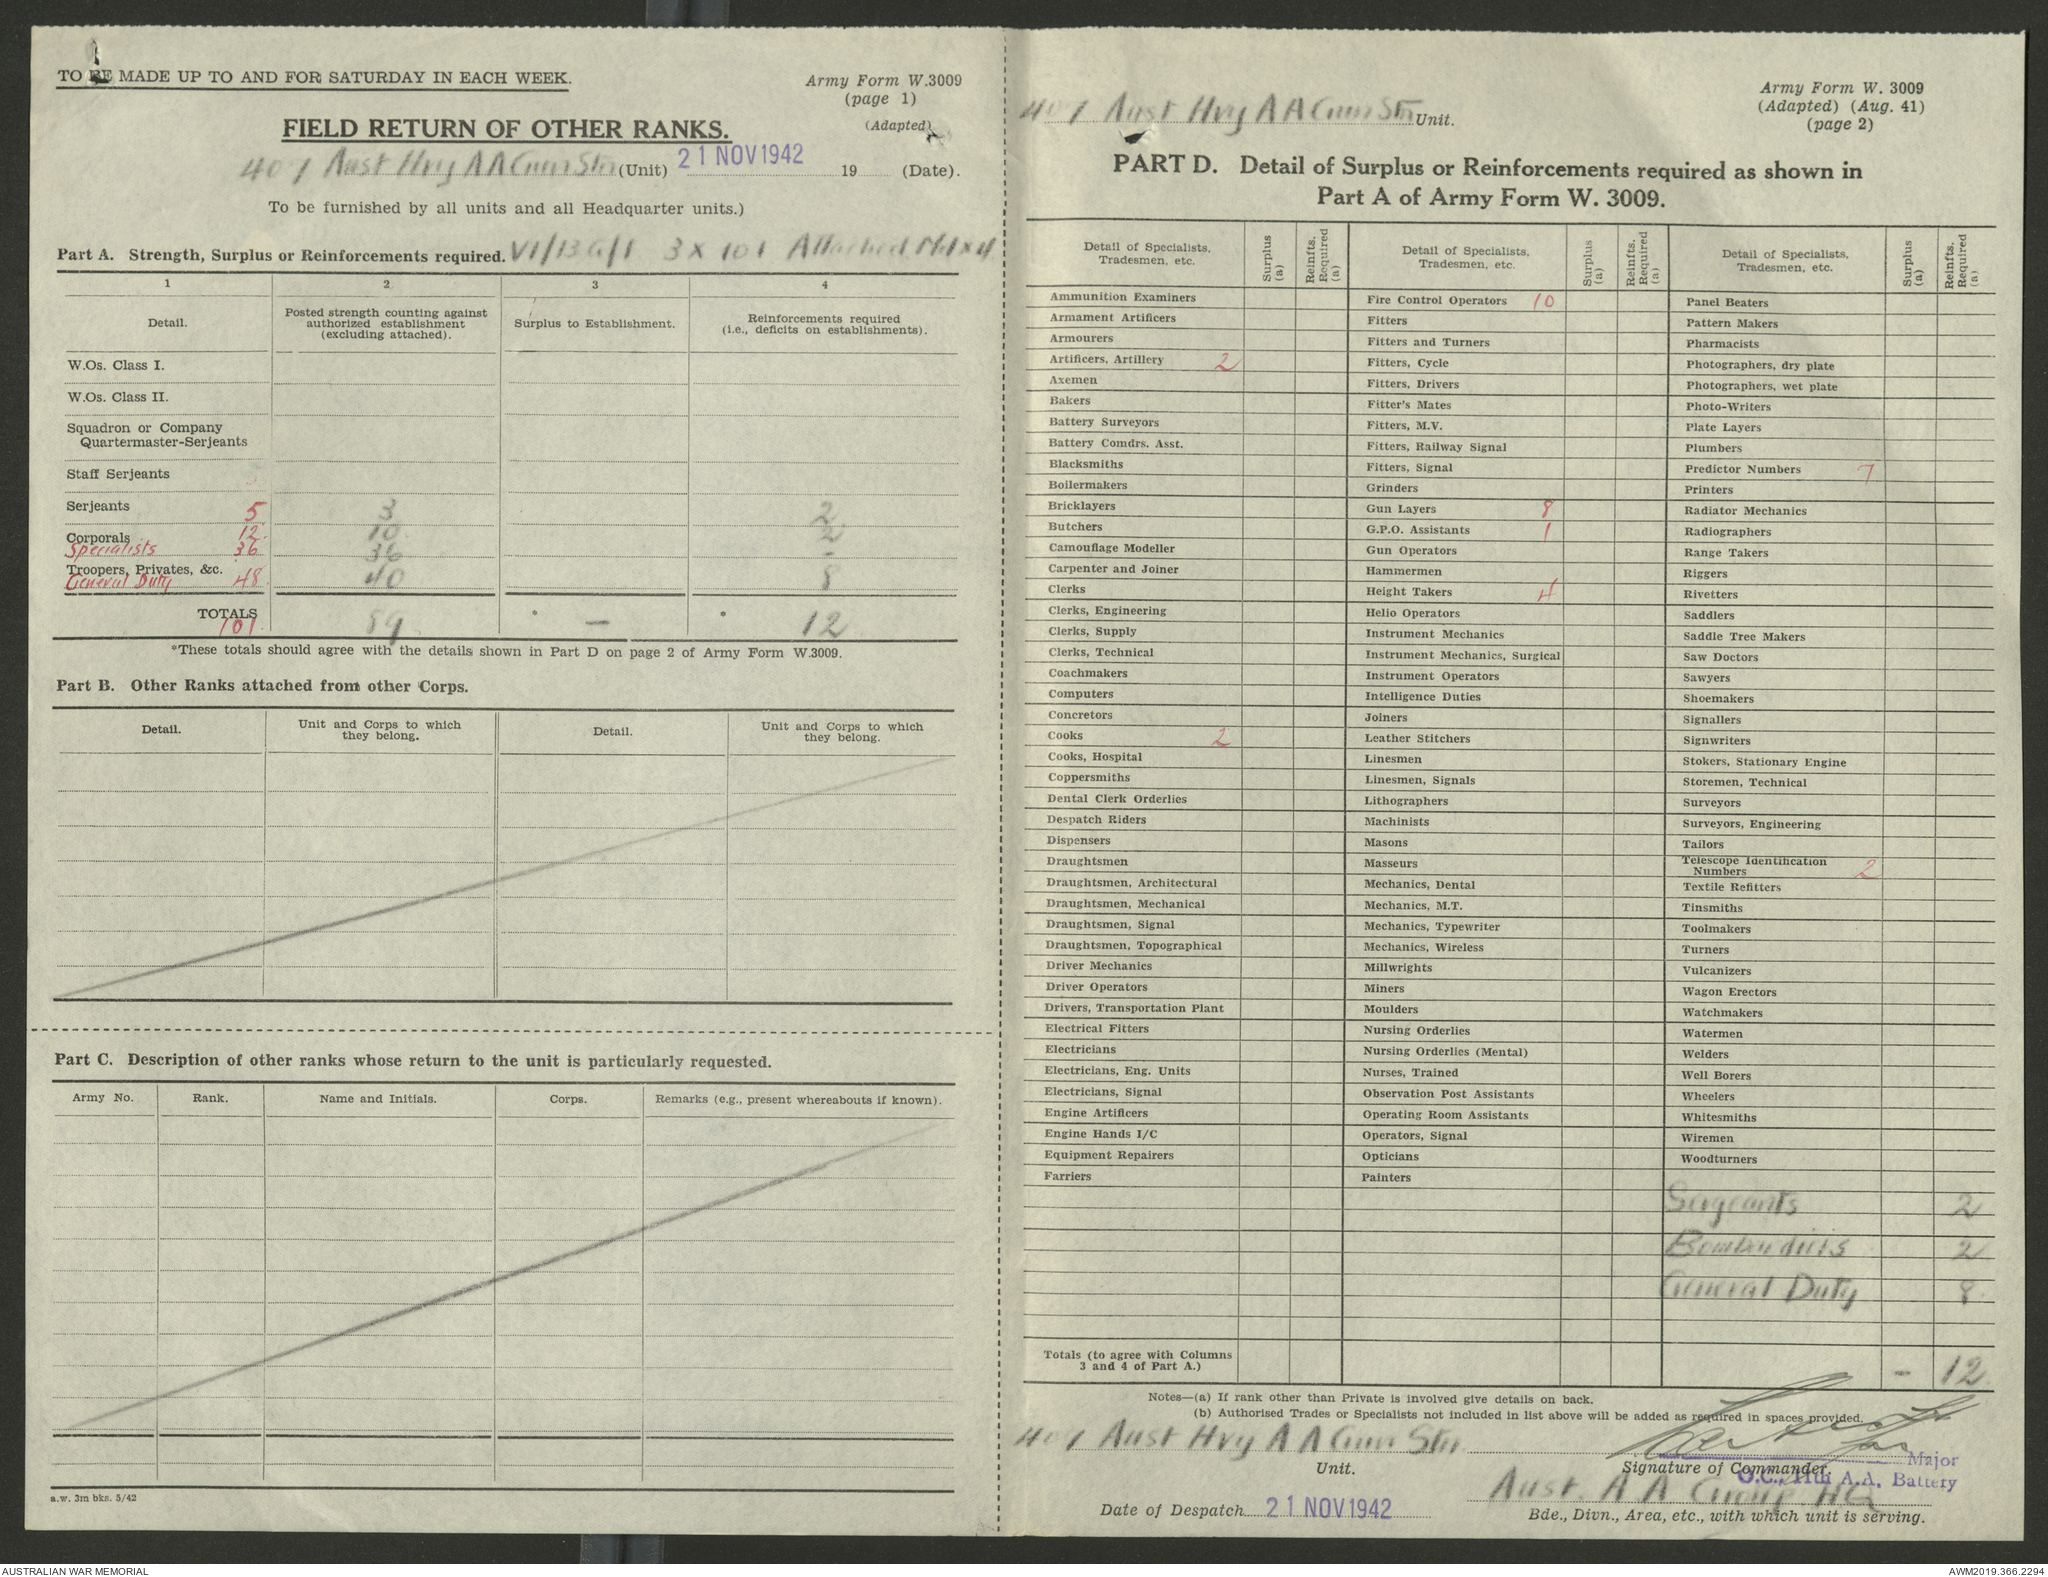 TO BE MADE UP TO AND FOR SATURDAY IN EACH WEEK.
Army Form W.3009
(page 1)
(Adapted)
FIELD RETURN OF OTHER RANKS.
407 Aust Hvy A A Gun Stn (Unit) 21 NOV 1942 19 (Date).
To be furnished by all units and all Headquarter units.)
Part A. Strength, Surplus or Reinforcements required. VI/13G/1 3 x 101 Attached Md x 4
1 2 3 4
Detail. Posted strength counting against authorized establishment (excluding attached). Surplus to Establishment. Reinforcements required (i.e., deficits on establishments).
W.Os. Class I.
W.Os. Class II.
Squadron or Company
Quartermaster-Serjeants
Staff Serjeants
Serjeants 5 3 2
Corporals 12 10 2
Specialists 36 36 -
Troopers, Privates, &c.
General Duty 48 40 8
TOTALS
101 89 * — * 12
*These totals should agree with the details shown in Part D on page 2 of Army Form W.3009.
Part B. Other Ranks attached from other Corps.
Detail. Unit and Corps to which they belong. Detail. Unit and Corps to which they belong.
Part C. Description of other ranks whose return to the unit is particularly requested.
Army No. Rank. Name and Initials. Corps. Remarks (e.g., present whereabouts if known).
a.w. 3m bks. 5/42
407 Aust Hvy A A Gun Stn Unit.
Army Form W. 3009
(Adapted) (Aug. 41)
(page 2)
PART D. Detail of Surplus or Reinforcements required as shown in
Part A of Army Form W. 3009.
Detail of Specialists, Tradesmen, etc. Surplus (a) Reinfts. Required (a) Detail of Specialists, Tradesmen, etc. Surplus (a) Reinfts. Required (a) Detail of Specialists, Tradesmen, etc. Surplus (a) Reinfts. Required (a)
Ammunition Examiners
Armament Artificers
Armourers
Artificers, Artillery 2
Axemen
Bakers
Battery Surveyors
Battery Comdrs. Asst.
Blacksmiths
Boilermakers
Bricklayers
Butchers
Camouflage Modeller
Carpenter and Joiner
Clerks
Clerks, Engineering
Clerks, Supply
Clerks, Technical
Coachmakers
Computers
Concretors
Cooks 2
Cooks, Hospital
Coppersmiths
Dental Clerk Orderlies
Despatch Riders
Dispensers
Draughtsmen
Draughtsmen, Architectural
Draughtsmen, Mechanical
Draughtsmen, Signal
Draughtsmen, Topographical
Driver Mechanics
Driver Operators
Drivers, Transportation Plant
Electrical Fitters
Electricians
Electricians, Eng. Units
Electricians, Signal
Engine Artificers
Engine Hands I/C
Equipment Repairers
Farriers
Fire Control Operators 10
Fitters
Fitters and Turners
Fitters, Cycle
Fitters, Drivers
Fitter's Mates
Fitters, M.V.
Fitters, Railway Signal
Fitters, Signal
Grinders
Gun Layers 8
G.P.O. Assistants 1
Gun Operators
Hammermen
Height Takers 4
Helio Operators
Instrument Mechanics
Instrument Mechanics, Surgical
Instrument Operators
Intelligence Duties
Joiners
Leather Stitchers
Linesmen
Linesmen, Signals
Lithographers
Machinists
Masons
Masseurs
Mechanics, Dental
Mechanics, M.T.
Mechanics, Typewriter
Mechanics, Wireless
Millwrights
Miners
Moulders
Nursing Orderlies
Nursing Orderlies (Mental)
Nurses, Trained
Observation Post Assistants
Operating Room Assistants
Operators, Signal
Opticians
Painters
Panel Beaters
Pattern Makers
Pharmacists
Photographers, dry plate
Photographers, wet plate
Photo-Writers
Plate Layers
Plumbers
Predictor Numbers 7
Printers
Radiator Mechanics
Radiographers
Range Takers
Riggers
Rivetters
Saddlers
Saddle Tree Makers
Saw Doctors
Sawyers
Shoemakers
Signallers
Signwriters
Stokers, Stationary Engine
Storemen, Technical
Surveyors
Surveyors, Engineering
Tailors
Telescope Identification
Numbers 2
Textile Refitters
Tinsmiths
Toolmakers
Turners
Vulcanizers
Wagon Erectors
Watchmakers
Watermen
Welders
Well Borers
Wheelers
Whitesmiths
Wiremen
Woodturners
Sergeants 2
Bombardiers 2
General Duty 8
Totals (to agree with Columns
3 and 4 of Part A.) - 12
Notes—(a) If rank other than Private is involved give details on back.
(b) Authorised Trades or Specialists not included in list above will be added as required in spaces provided.
407 Aust Hvy A A Gun Stn
Unit.
Signature of Commander.
Major
O.C., 11th A.A. Battery
Aust. A A Group HQ
Date of Despatch 21 NOV 1942
Bde., Divn., Area, etc., with which unit is serving.
AUSTRALIAN WAR MEMORIAL
AWM2019.366.2294